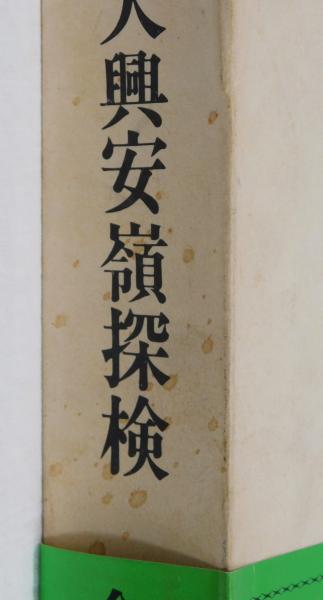 大興安嶺探検